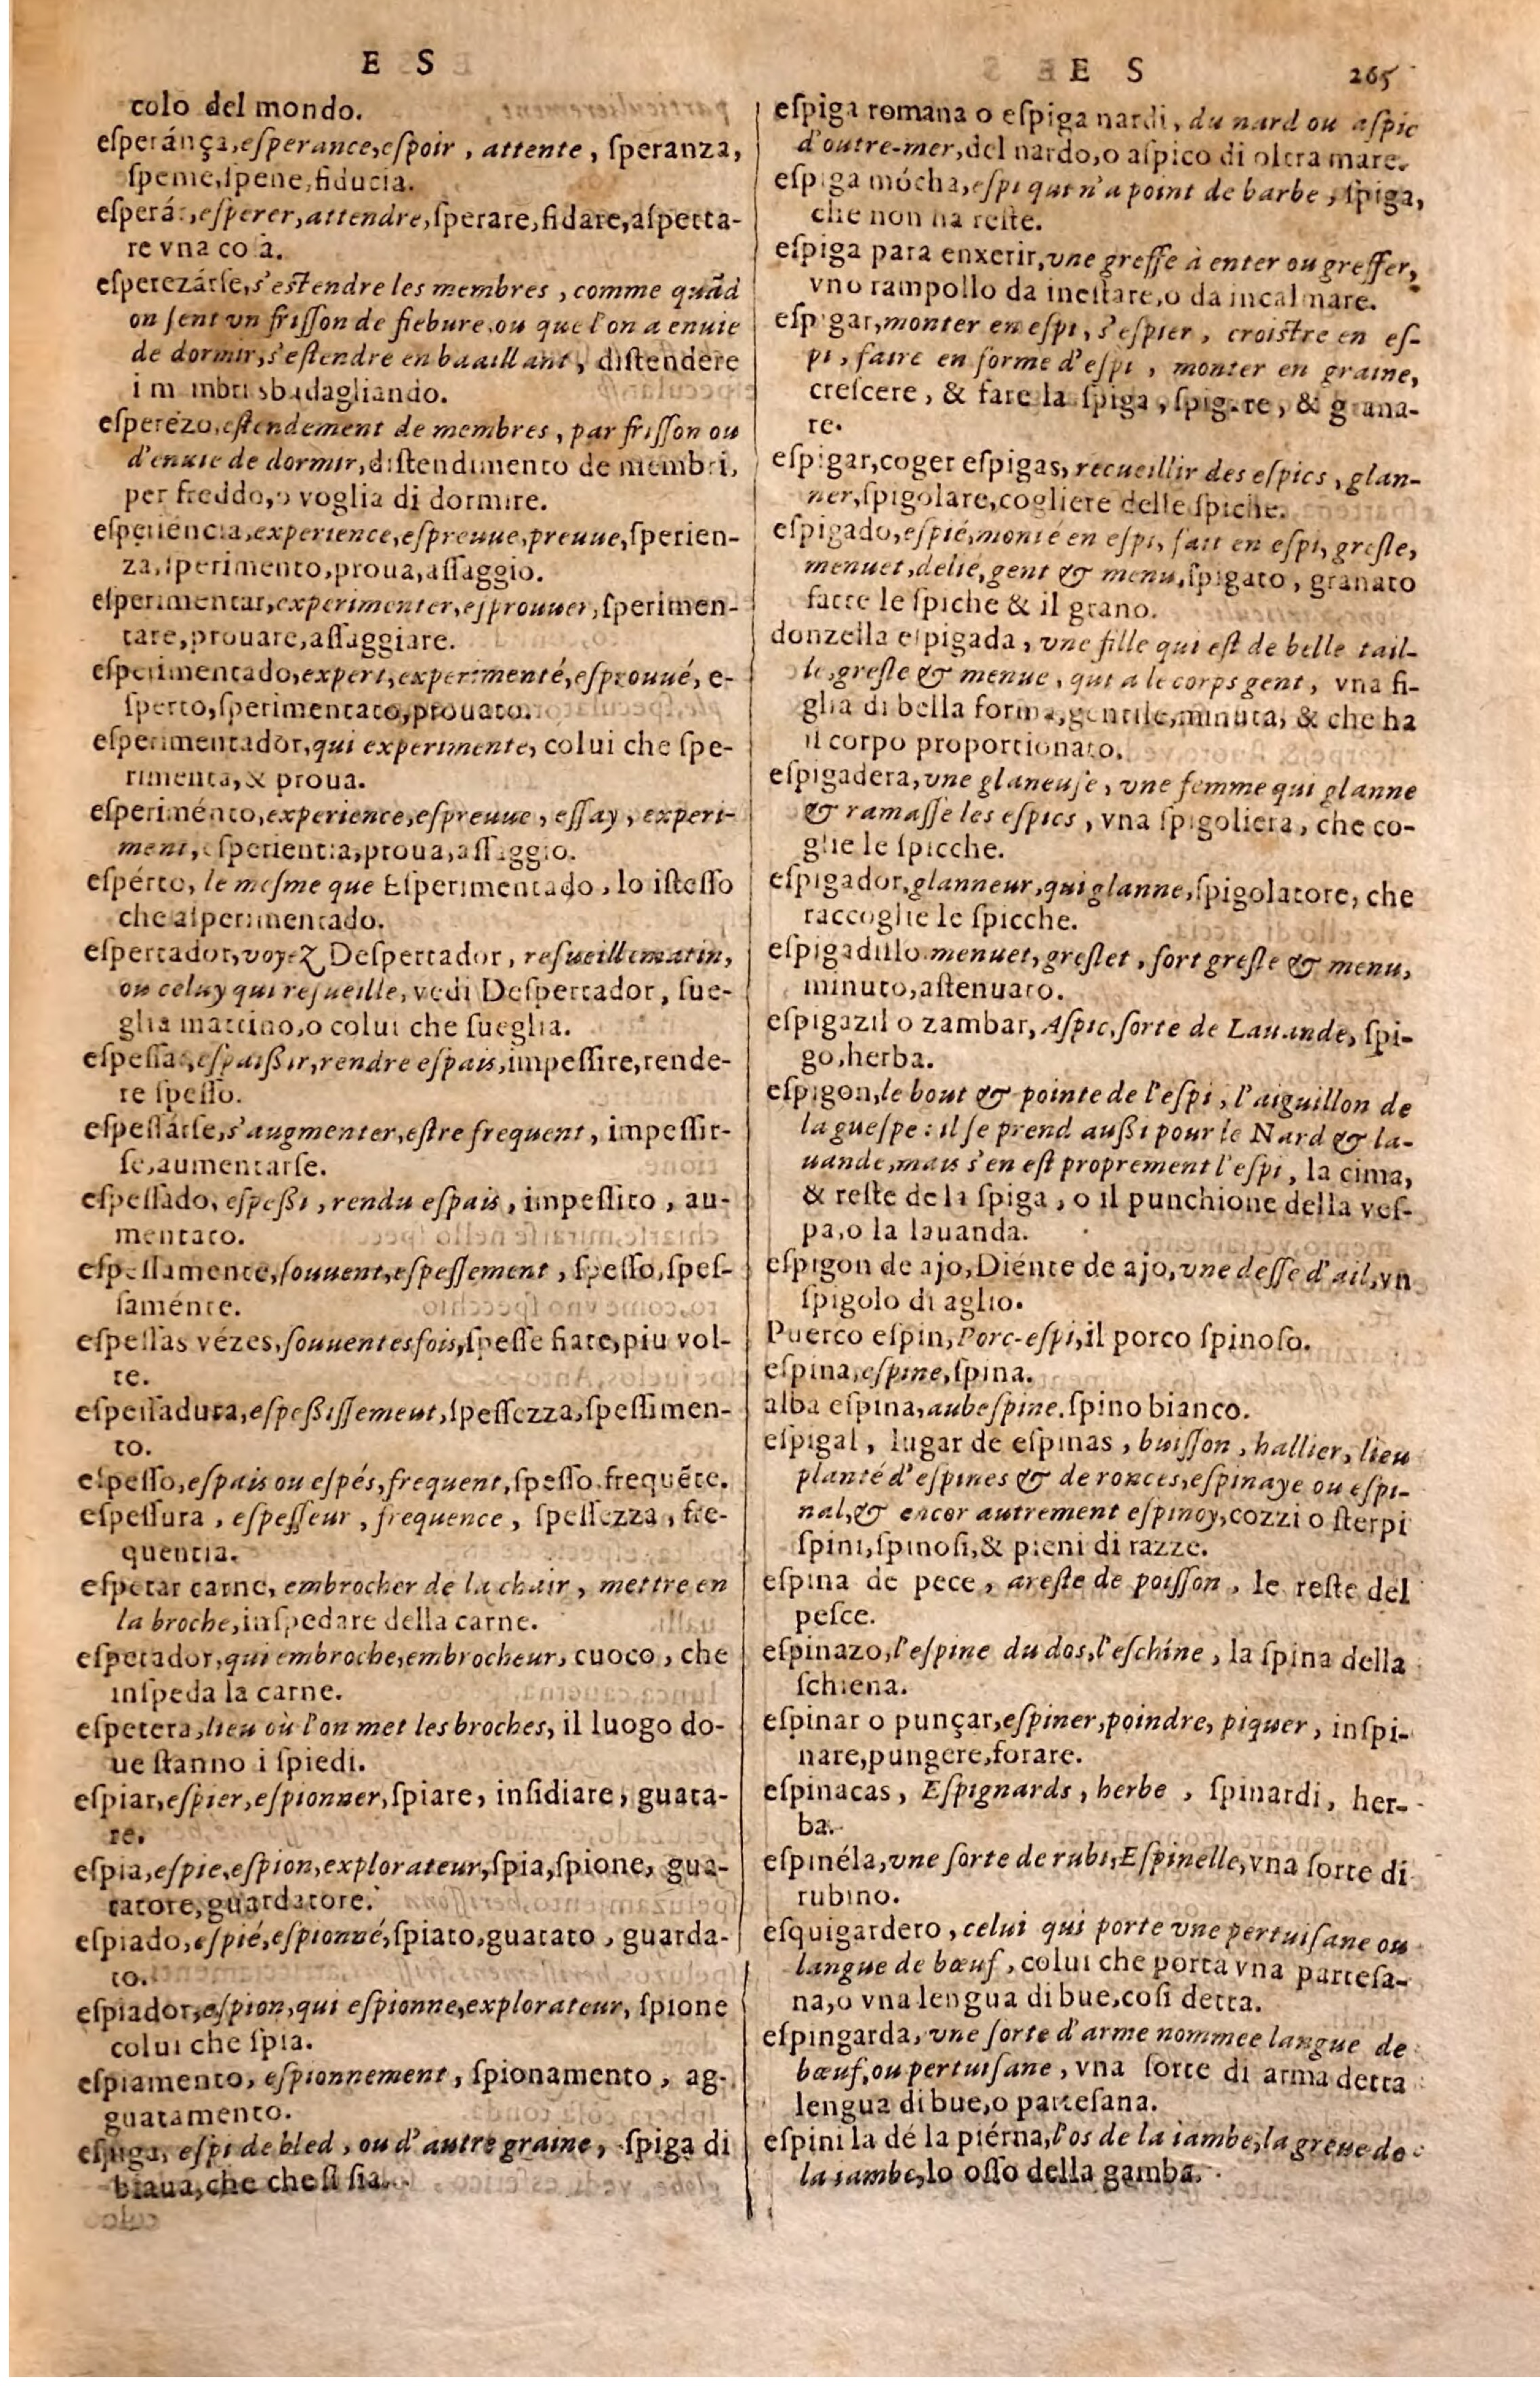 E S
colo del mondo.
eſperánça,eſperance,eſpoir, attente, ſperanza,
ſpeme,ſpene,fiducia.
eſperár,eſperer,attendre,ſperare,fidare,aſpetta-
re vna coſa.
eſperezárſe,s'eſtendre les membres, comme quãd
on ſent vn friſſon de fiebure,ou que l'on a enuie
de dormir,s'eſtendre en baaillant, diſtendere
i membri sbadagliando.
eſperézo,eſtendement de membres, par friſſon ou
d'enuie de dormir,diſtendimento de membri,
per freddo,o voglia di dormire.
eſperiéncia,experience,eſpreuue,preuue,ſperien-
za,ſperimento,proua,aſſaggio.
eſperimentar,experimenter,eſprouuer,ſperimen-
tare,prouare,aſſaggiare.
eſperimentado,expert,experimenté,eſprouué, e-
ſperto,ſperimentato,prouato.
eſperimentador,qui experimente, colui che ſpe-
rimenta,& proua.
eſperiménto,experience,eſpreuue, eſſay, experi-
ment,eſperientia,proua,aſſaggio.
eſpérto, le meſme que Eſperimentado, lo iſteſſo
che aſperimentado.
eſpertador,voyez Deſpertador, reſueillematin,
ou celuy qui reſueille, vedi Deſpertador, ſue-
glia mattino,o colui che ſueglia.
eſpeſſar,eſpaißir,rendre eſpais,impeſſire,rende-
re ſpeſſo.
eſpeſſárſe,s'augmenter,eſtre frequent, impeſſir-
ſe,aumentarſe.
eſpeſſado, eſpeßi, rendu eſpais, impeſſito, au-
mentato.
eſpeſſamente,ſouuent,eſpeſſement, ſpeſſo,ſpeſ-
ſaménte.
eſpeſſas vézes,ſouuentesfois,ſpeſſe fiate,piu vol-
te.
eſpeſſadura,eſpeßiſſement,ſpeſſezza,ſpeſſimen-
to.
eſpeſſo,eſpais ou eſpés,frequent,ſpeſſo.frequẽte.
eſpeſſura, eſpeſſeur, frequence, ſpeſſezza, fre-
quentia.
eſpetar carne, embrocher de la chair, mettre en
la broche,inſpedare della carne.
eſpetador,qui embroche,embrocheur, cuoco, che
inſpeda la carne.
eſpetera,lieu où l'on met les broches, il luogo do-
ue ſtanno i ſpiedi.
eſpiar,eſpier,eſpionner,ſpiare, inſidiare, guata-
re.
eſpia,eſpie,eſpion,explorateur,ſpia,ſpione, gua-
tatore,guardatore.
eſpiado,eſpié,eſpionné,ſpiato,guatato, guarda-
to.
eſpiador,eſpion,qui eſpionne,explorateur, ſpione
colui che ſpia.
eſpiamento, eſpionnement, ſpionamento, ag-
guatamento.
eſpiga, eſpi de bled, ou d'autre graine, ſpiga di
biaua,che che ſi ſia.
E S 265
eſpiga romana o eſpiga nardi, du nard ou aſpic
d'outre-mer,del nardo,o aſpico di oltra mare.
eſpiga mócha,eſpi qui n'a point de barbe, ſpiga,
che non ha reſte.
eſpiga para enxerir,vne greffe à enter ou greffer,
vno rampollo da ineſtare,o da incalmare.
eſpigar,monter en eſpi, s'eſpier, croiſtre en eſ-
pi, faire en forme d'eſpi, monter en graine,
creſcere, & fare la ſpiga, ſpigare, & grana-
re.
eſpigar,coger eſpigas, recueillir des eſpics, glan-
ner,ſpigolare,cogliere delle ſpiche.
eſpigado,eſpié,monté en eſpi, fait en eſpi, greſle,
menuet,delié,gent & menu,ſpigato, granato
fatte le ſpiche & il grano.
donzella eſpigada, vne fille qui eſt de belle tail-
le,greſle & menue, qui a le corps gent, vna fi-
glia di bella forma,gentile,minuta, & che ha
il corpo proportionato.
eſpigadera,vne glaneuſe, vne femme qui glanne
& ramaſſe les eſpics, vna ſpigoliera, che co-
glie le ſpicche.
eſpigador,glanneur,qui glanne,ſpigolatore, che
raccoglie le ſpicche.
eſpigadillo.menuet,greſlet, fort greſle & menu,
minuto,aſtenuato.
eſpigazil o zambar, Aſpic,ſorte de Lauande, ſpi-
go,herba.
eſpigon,le bout & pointe de l'eſpi, l'aiguillon de
la gueſpe: il ſe prend außi pour le Nard & la-
uande,mais s'en eſt proprement l'eſpi, la cima,
& reſte de la ſpiga, o il punchione della veſ-
pa,o la lauanda.
eſpigon de ajo,Diénte de ajo,vne deſſe d'ail,vn
ſpigolo di aglio.
Puerco eſpin,Porc-eſpi,il porco ſpinoſo.
eſpina,eſpine,ſpina.
alba eſpina,aubeſpine.ſpino bianco.
eſpigal, lugar de eſpinas, buiſſon, hallier, lieu
planté d'eſpines & de ronces,eſpinaye ou eſpi-
nal,& encor autrement eſpinoy,cozzi o ſterpi
ſpini,ſpinoſi,& pieni di razze.
eſpina de pece, areſte de poiſſon, le reſte del
peſce.
eſpinazo,l'eſpine du dos,l'eſchine, la ſpina della
ſchiena.
eſpinar o punçar,eſpiner,poindre, piquer, inſpi-
nare,pungere,forare.
eſpinacas, Eſpignards, herbe, ſpinardi, her-
ba.
eſpinéla,vne ſorte de rubi,Eſpinelle,vna ſorte di
rubino.
eſquigardero, celui qui porte vne pertuiſane ou
langue de bœuf, colui che porta vna parteſa-
na,o vna lengua di bue,coſi detta.
eſpingarda, vne ſorte d'arme nommee langue de
bœuf,ou pertuiſane, vna ſorte di arma detta
lengua di bue,o parteſana.
eſpinilla dé la piérna,l'os de la iambe,la greue de
la iambe,lo oſſo della gamba.